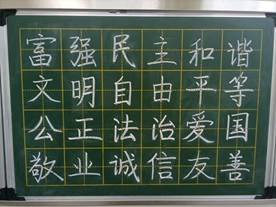 富强民主和谐
文明自由平等
公正法治爱国
敬业诚信友善